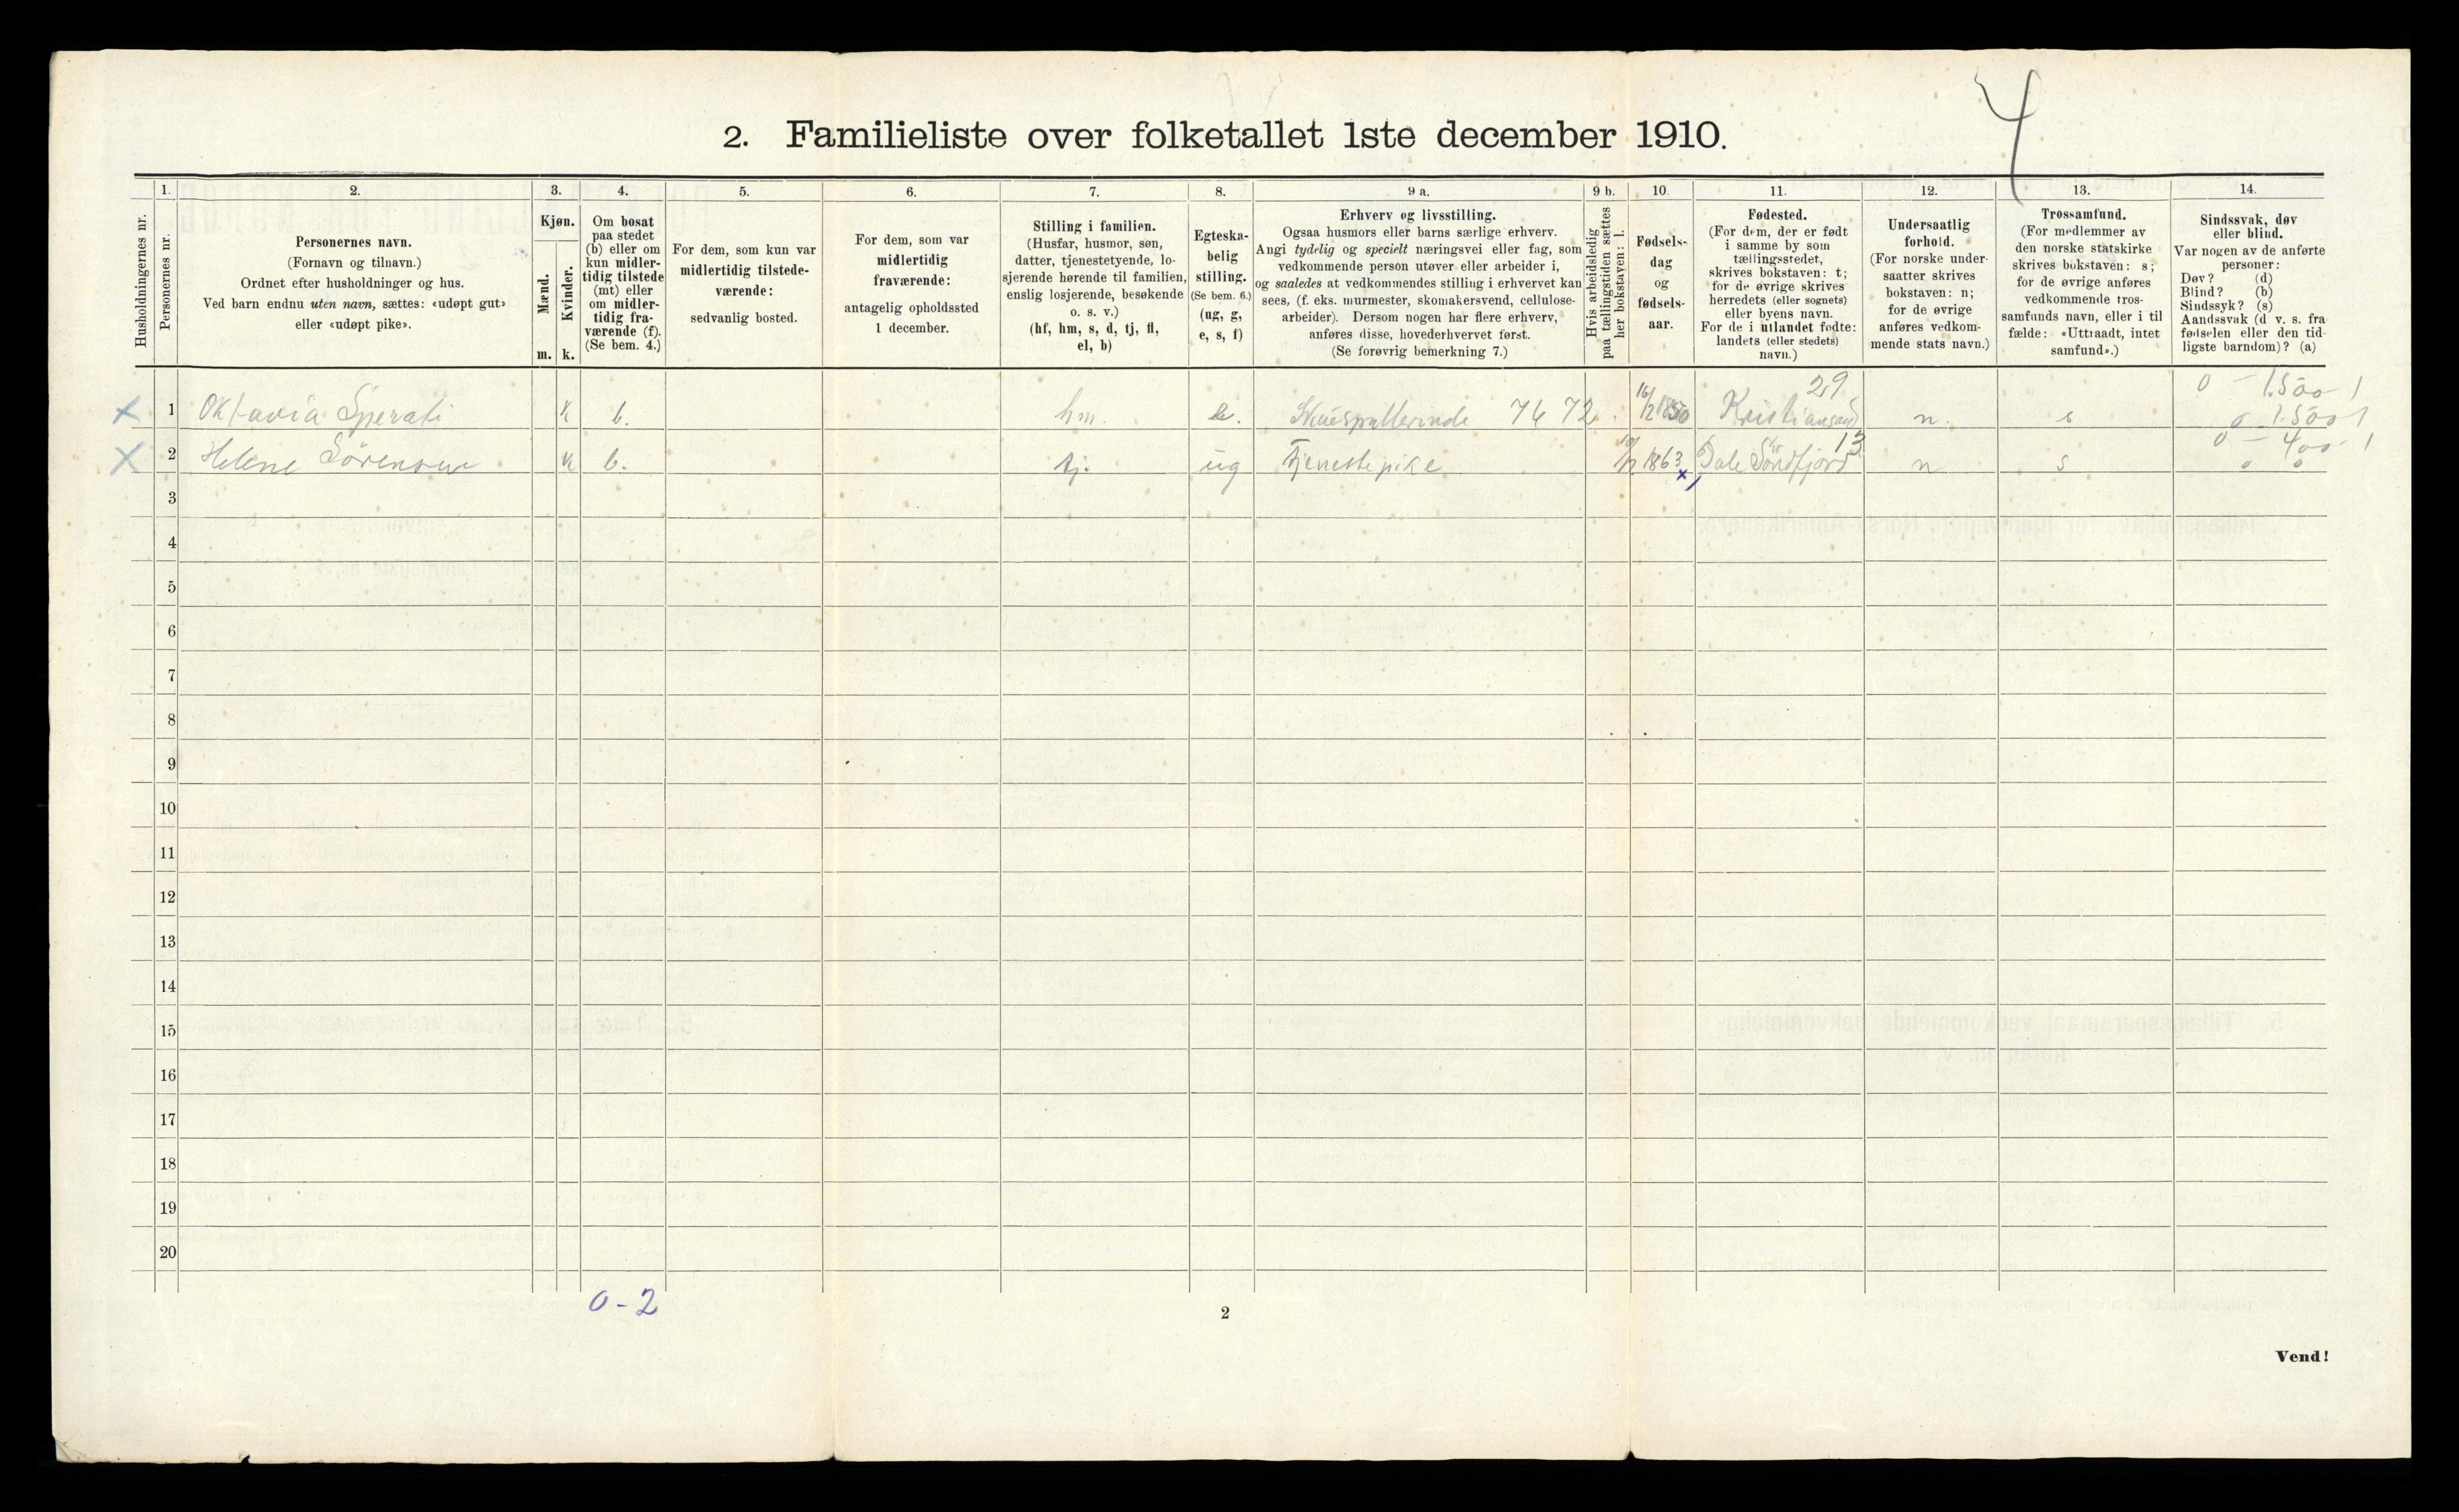 4
2. Familieliste over folketallet 1ste december 1910.
1. 2. 3. 4. 5. 6. 7. 8. 9 a. 9 b. 10. 11. 12. 13. 14.
Husholdningernes nr.
Personernes nr.
Personernes navn.
(Fornavn og tilnavn.)
Ordnet efter husholdninger og hus.
Ved barn endnu uten navn, sættes: «udøpt gut»
eller «udøpt pike».
Kjøn.
Mænd.
Kvinder.
m. k.
Om bosat
paa stedet
(b) eller om
kun midler-
tidig tilstede
(mt) eller
om midler-
tidig fra-
værende (f).
(Se bem. 4.)
For dem, som kun var
midlertidig tilstede-
værende:
sedvanlig bosted.
For dem, som var
midlertidig
fraværende:
antagelig opholdssted
1 december.
Stilling i familien.
(Husfar, husmor, søn,
datter, tjenestetyende, lo-
sjerende hørende til familien,
enslig losjerende, besøkende
o. s. v.)
(hf, hm, s, d, tj, fl,
el, b)
Egteska-
belig
stilling.
(Se bem. 6.)
(ug, g,
e, s, f)
Erhverv og livsstilling.
Ogsaa husmors eller barns særlige erhverv.
Angi tydelig og specielt næringsvei eller fag, som
vedkommende person utøver eller arbeider i,
og saaledes at vedkommendes stilling i erhvervet kan
sees, (f. eks. murmester, skomakersvend, cellulose-
arbeider). Dersom nogen har flere erhverv,
anføres disse, hovederhvervet først.
(Se forøvrig bemerkning 7.)
Hvis arbeidsledig
paa tællingstiden sættes
her bokstaven: l.
Fødsels-
dag
og
fødsels-
aar.
Fødested.
(For dem, der er født
i samme by som
tællingsstedet,
skrives bokstaven: t;
for de øvrige skrives
herredets (eller sognets)
eller byens navn.
For de i utlandet fødte:
landets (eller stedets)
navn.)
Undersaatlig
forhold.
(For norske under-
saatter skrives
bokstaven: n;
for de øvrige
anføres vedkom-
mende stats navn.)
Trossamfund.
(For medlemmer av
den norske statskirke
skrives bokstaven: s;
for de øvrige anføres
vedkommende tros-
samfunds navn, eller i til
fælde: «Uttraadt, intet
samfund».)
Sindssvak, døv
eller blind.
Var nogen av de anførte
personer:
Døv? (d)
Blind? (b)
Sindssyk? (s)
Aandssvak (d v. s. fra
fødselen eller den tid-
ligste barndom)? (a)
29 0 - 1.500 1
x 1 Oktavia Sperati k b. hm. e. Skuespillerinde 7672 16/2 1850 Kristiansand n. s 0 1.500 1
13 0 - 400 - 1
x 2 Helene Sörensen k b. tj. ug Tjenestepike 1863 Dale Söndfjord n s 0 0
3
4
5
6
7
8
9
10
11
12
13
14
15
16
17
18
19
20
0 - 2
2
Vend!